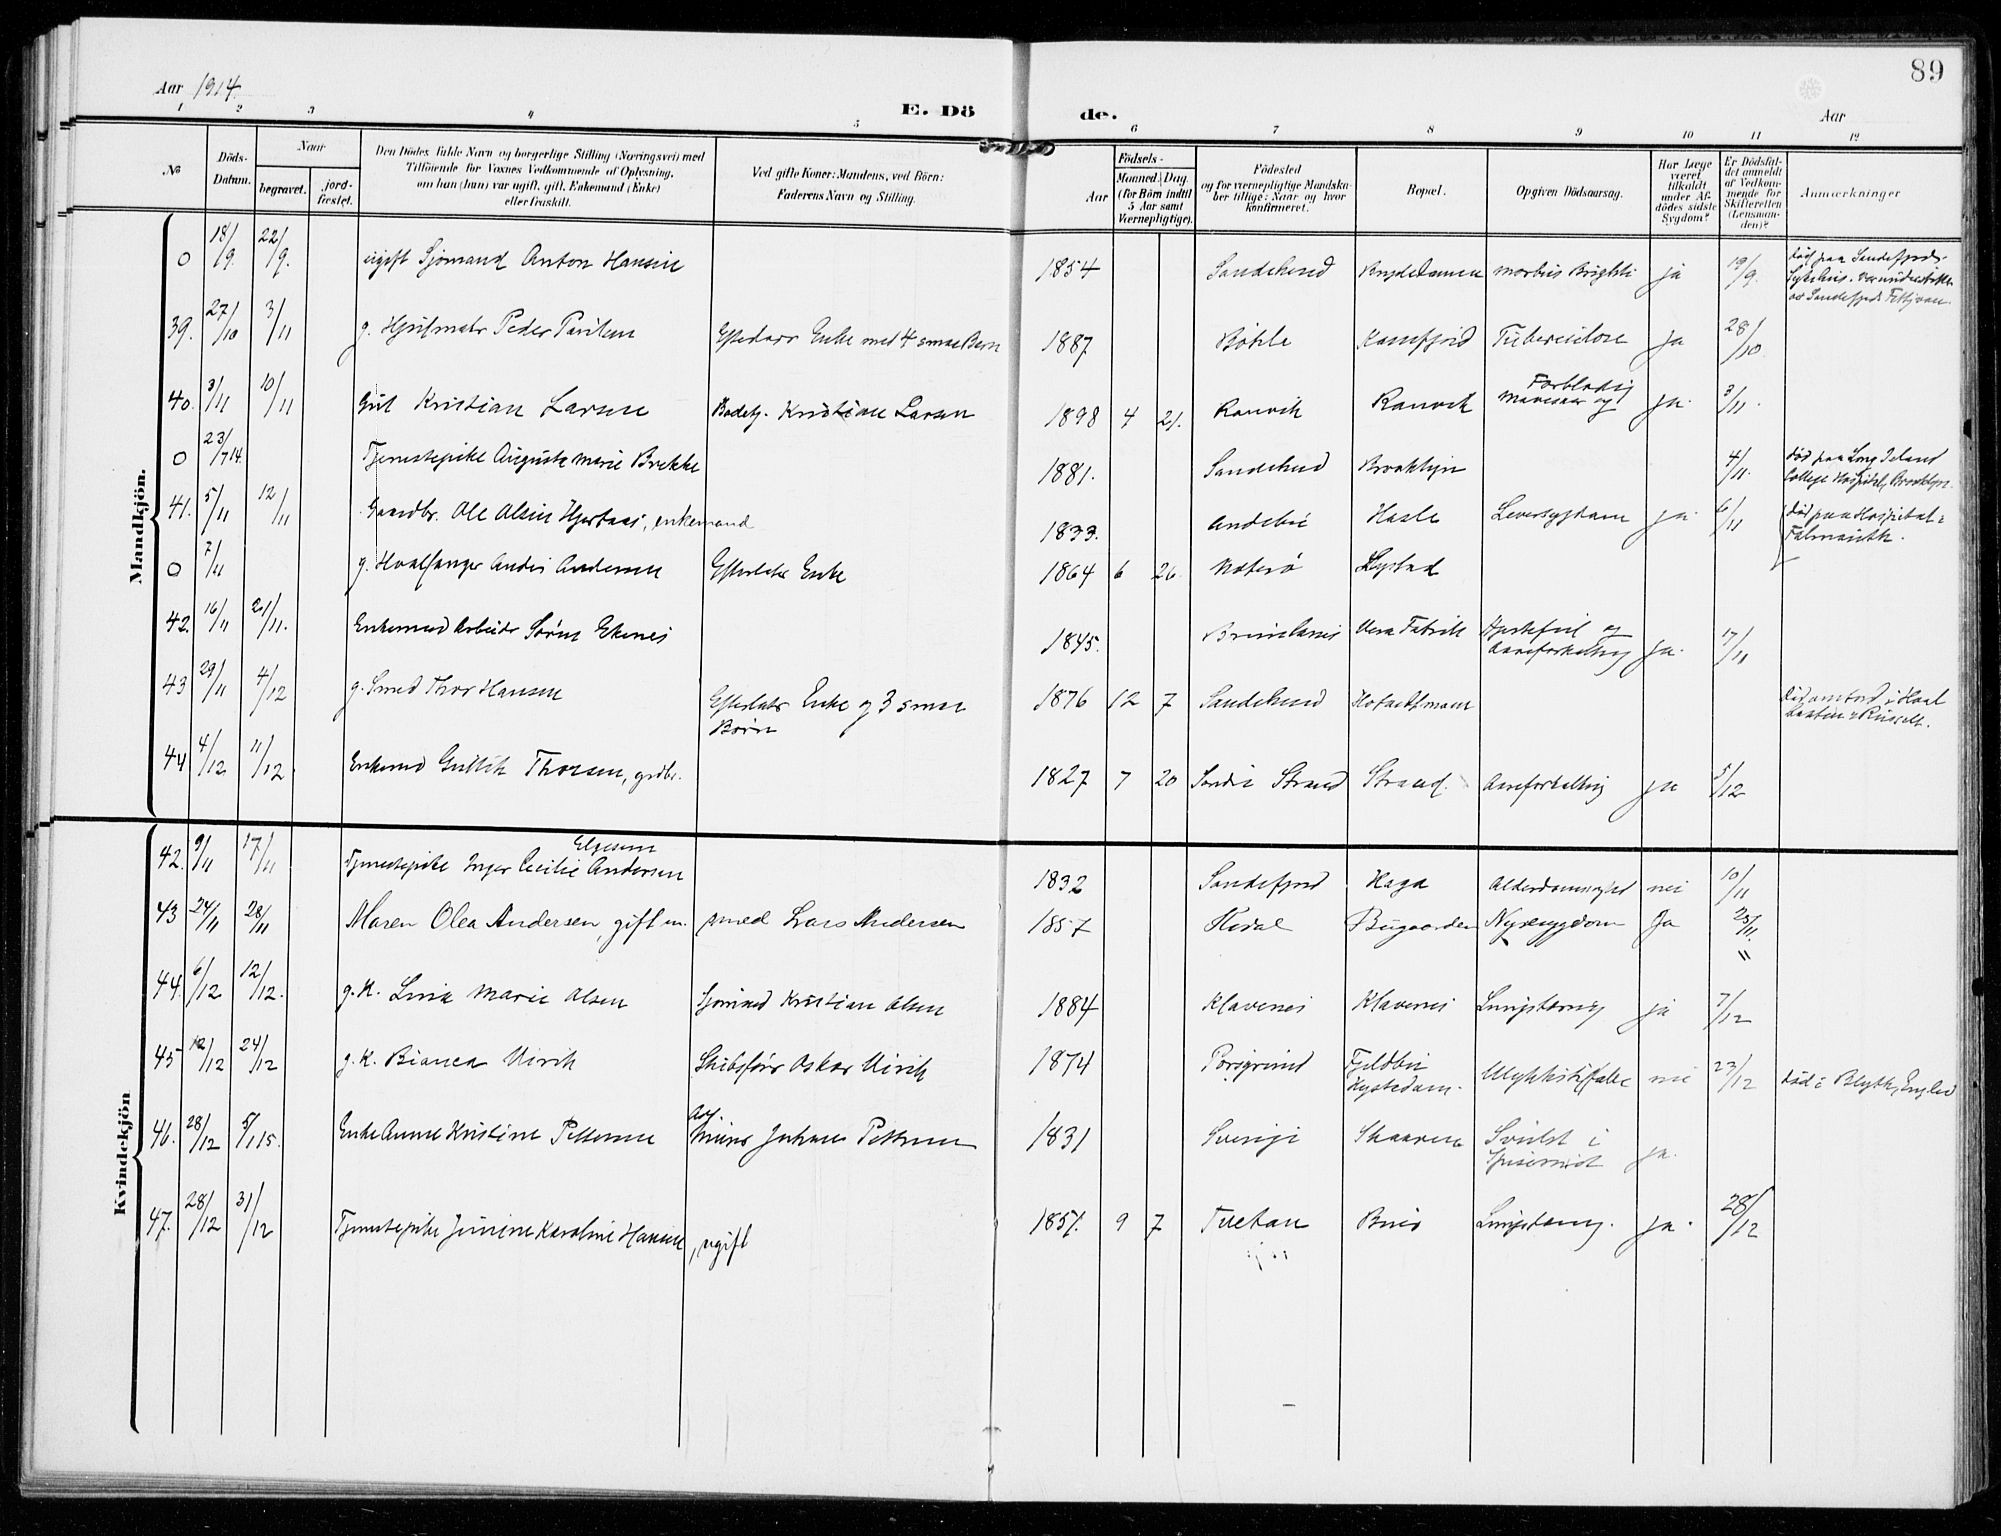 89
Aar 1914.
E. Dö de.
Aar
1 2 3 4 5 6 7 8 9 10 11 12
No
Döds-Datum.
Naar
begravet.
jord-fæstet.
Den Dödes fulde Navn og borgerlige Stilling (Næringsvei) med
Tilföiende for Voxnes Vedkommende af Oplysning,
om han (hun) var ugift, gift, Enkemand (Enke)
eller fraskilt.
Ved gifte Koner: Mandens, ved Börn:
Faderens Navn og Stilling.
Födsels-
Aar
Maaned. Dag.
(for Börn indtil
5 Aar samt
Værnepligtige).
Födested
og for værnepligtige Mandska-
ber tillige: Naar og hvor
konfirmeret.
Bopæl.
Opgiven Dödsaarsag.
Har Læge
været
tilkaldt
under Af-
dödes sidste
Sygdom?
Er Dödsfal-
det anmeldt
af Vedkom-
mende for
Skifteretten
(Lensman-
den)?
Anmærkninger
Mandkjön.
0 18/9. 22/9. ugift Sjömand Anton Hansen 1854 Sandeherred Bugdedammen morbus Brightii ja 19/9. död paa Sandefjords Sykehus.
39. 27/10 3/11 g. Hjulmaker Peder Paulsen Efterlater Enke med 4 smaa Børn 1887 Kamfjord Tuberculose ja 28/10.
40. 3/11 10/11 Gut Kristian Larsen Kristian Larsen 1898 4 21. Ranvik Ranvik Mavesaar og Forblødnig ja. 3/11.
0 23/7 14. Tjenestepike Augusta Marie Brekke 1881. Sandeherred Brooklyn 4/11. död paa Long Island College Hospital, Brooklyn.
41. 5/11 12/11 Gaardbr. Ole Olsen Hjertaas, enkemand 1833. Andebu Hasle Leversygdom ja. 6/11
0 7/11 g. Hvalfanger Anders Andersen Efterlater Enke 1864 6 26. Nøterø Lystad död paa Hospital i Falmouth.
42. 16/11 21/11. Enkemand Arbeider Søren Ekenes 1845. Brunlanes Vera Fabrik Hjertefeil og Aareforkalkning ja. 17/11
43 29/11 4/12 g. Smed Thor Hansen Efterlater Enke og 3 smaa Børn 1876 12 7 Sandeherred
44 4/12 11/12 Enkemand Gullik Thorsen, grdbr. 1827 7 20 Søndre Strand Strand. Aareforkalkning ja 5/12
Kvindekjön
42. 9/11 17/11 Tjenestepike Inger Cecilie Elgesem Andersen 1832 Sandefjord Haga Alderdomssvaghed nei 10/11
43 24/11 28/11 Maren Olea Andersen, gift m. smed Lars Andersen 1857 Hedal Bugaarden Nyresygdom Ja 25/11. "
44. 6/12 12/12. g. K. Lovise Marie Olsen Sjømand Kristian Olsen 1884 Klavenes Klavenes Lungetæring ja 7/12
45 12/12 24/12 g. K. Bianca Ulrik Skibsfører Oskar Ulrik 1874 Porsgrund Ulykkestilfælde nei 23/12 död i Blyth, England
46. 28/12 5/1 15. Enke Anne Kristine Pettersen Johan Pettersen 1831 Sverige Skaaren Svulst i Spiserøret ja.
47. 28/12 31/12 Tjenestepike Jensine Karoline Hansen, ugift 1857. 9 7 Furstan Lungetæring. ja. 28/12